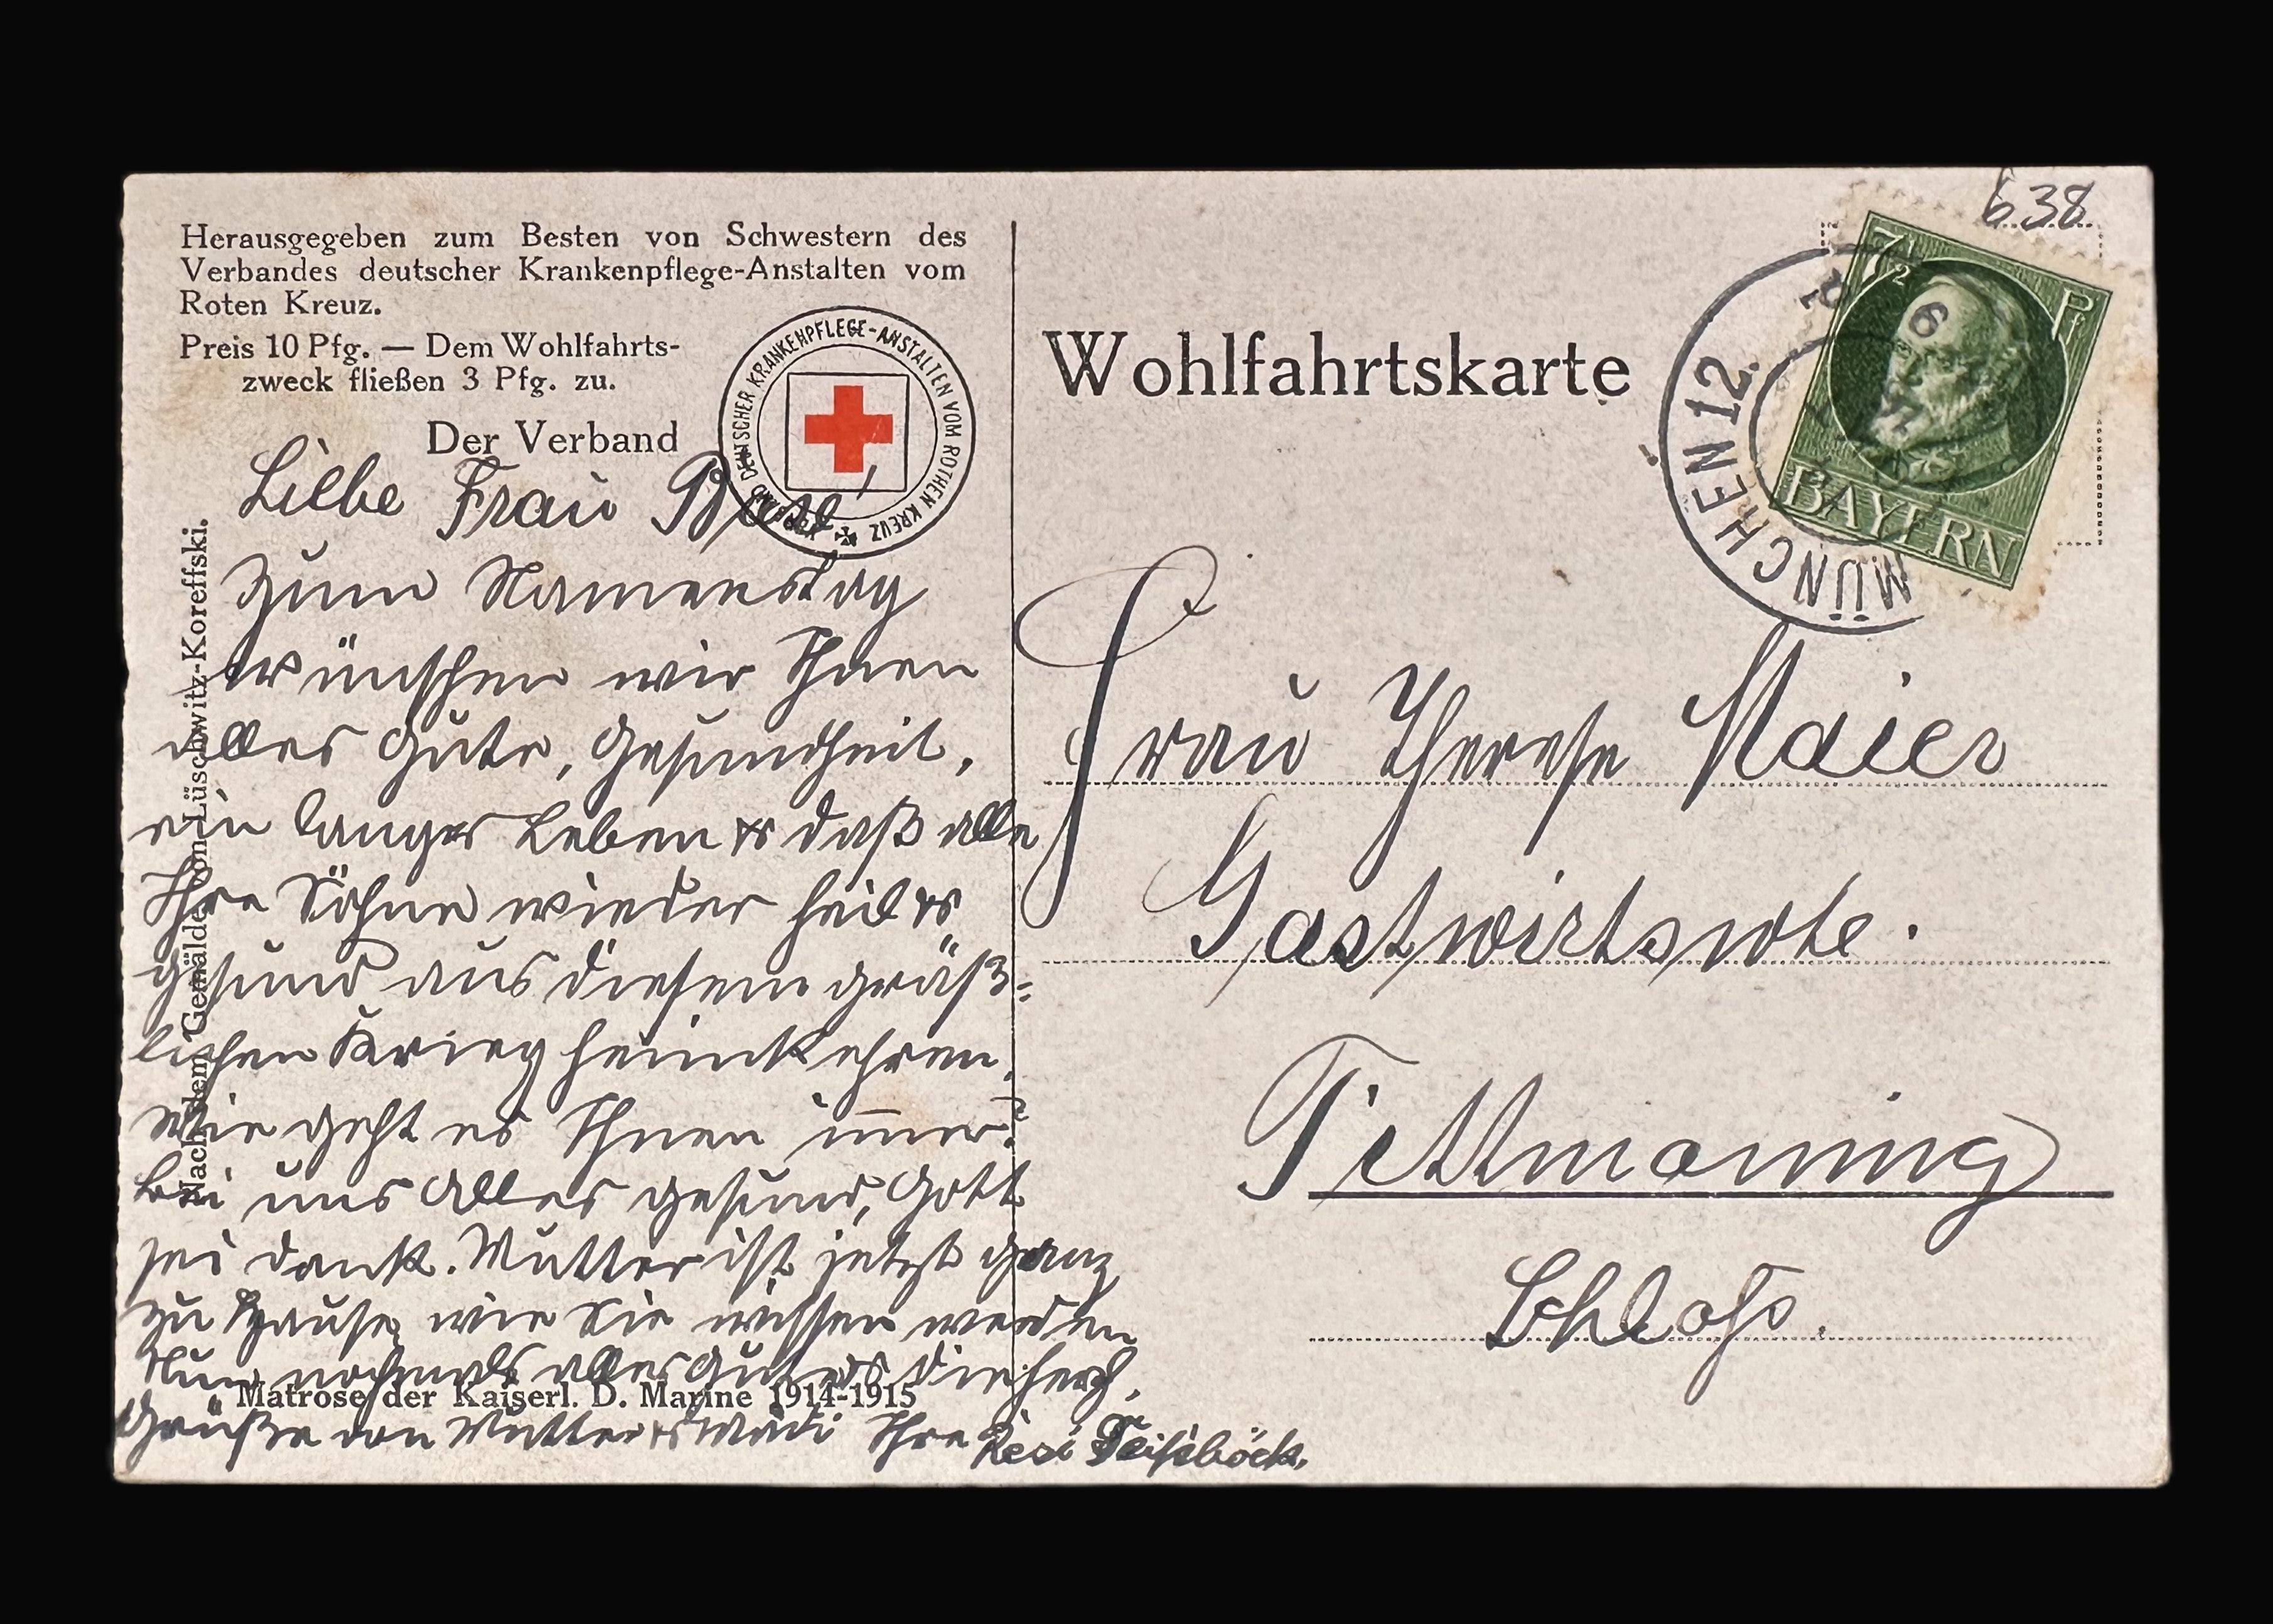 Herausgegeben zum Besten von Schwestern des
Verbandes deutscher Krankenpflege-Anstalten vom
Roten Kreuz.
Preis 10 Pfg. — Dem Wohlfahrts-
zweck fließen 3 Pfg. zu.
Der Verband
VERBAND DEUTSCHER KRANKENPFLEGE-ANSTALTEN VOM ROTHEN KREUZ
Liebe Frau
Zum Namenstag
wünschen wir Ihnen
alles Gute, Gesundheit,
ein langes Leben & daß alle
Ihre Söhne wieder heil &
gesund aus diesem gräß=
lichen Krieg heimkehren.
Wie geht es Ihnen im̅er?
Bei uns alles gesund, Gott
sei dank. Mutter ist jetzt ganz
zu Hause, wie Sie wissen werden
Nun nochmals alles Gute & die herzl.
Grüße von Mutter & Ihre Resi
Nach dem Gemälde von Lüschwitz-Koreffski.
Matrose der Kaiserl. D. Marine 1914-1915
Wohlfahrtskarte
638
7½ Pf
BAYERN
MÜNCHEN 12.
Frau Therese Maier
Gastwirtswte.
Tittmoning
Schloß.